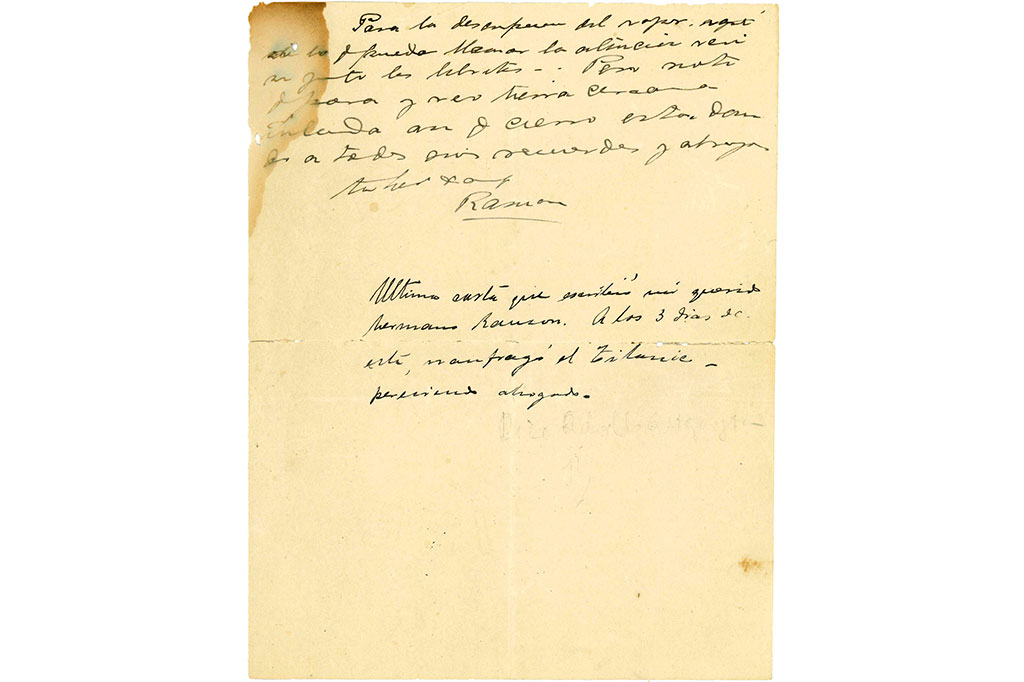 Para la descripcion del vapor, aqui
lo q pueda llamar la atencion
junto los libritos -. Pero noto
q para y veo tierra cercana
q cierro esta, dan
a todos mis recuerdos y abrazos
tu
Ramon
Ultima carta que escribió mi querido
hermano Ramon. A los 3 dias de
esta, naufragó el Titanic -
pereciendo ahogado.